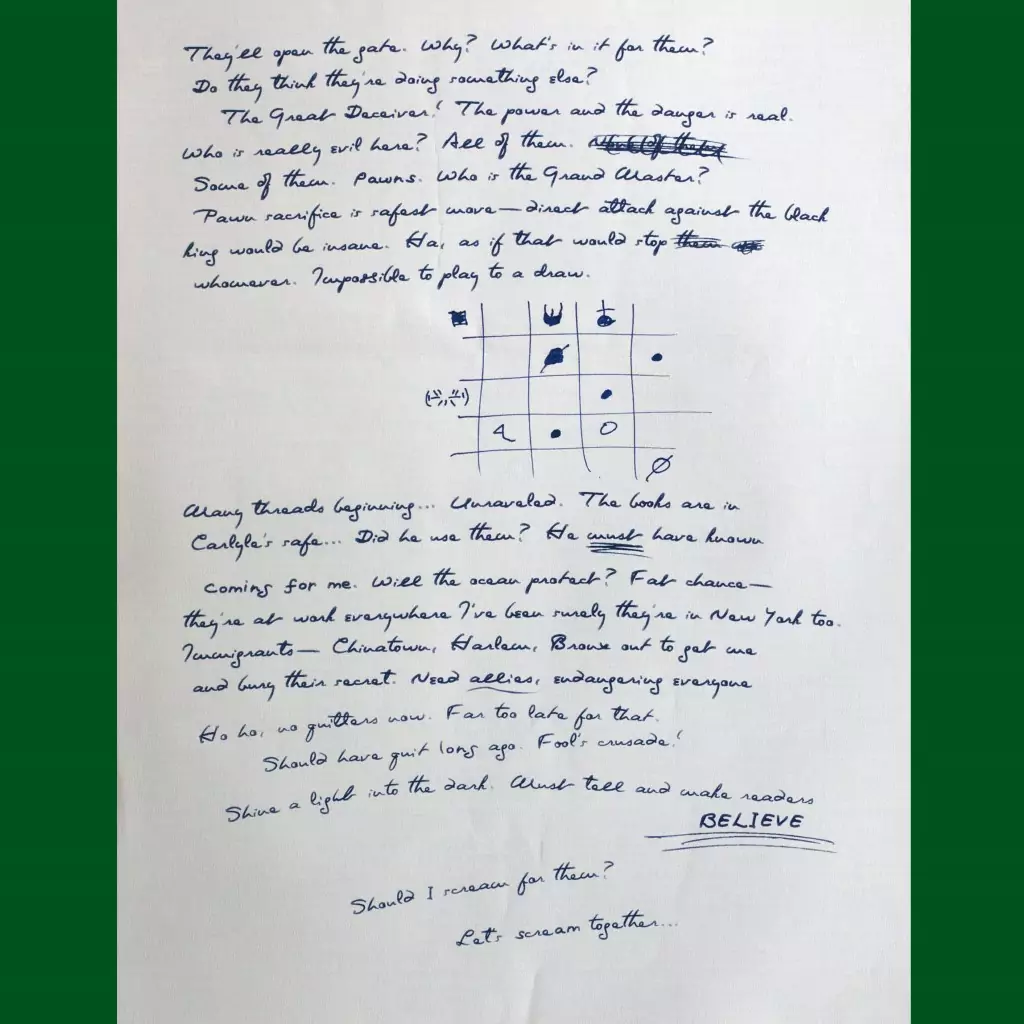 They'll open the gate. Why? What's in it for them?
Do they think they're doing something else?
The Great Deceiver! The power and the danger is real.
Who is really evil here? All of them.
Some of them. Pawns. Who is the Grand Master?
Pawn sacrifice is safest move — direct attack against the black
king would be insane. Ha, as if that would stop
whomever. Impossible to play to a draw.
Many threads beginning... Unraveled. The books are in
Carlyle's safe... Did he use them? He must have known
coming for me. Will the ocean protect? Fat chance —
they're at work everywhere I've been surely they're in New York too.
Immigrants — Chinatown, Harlem, Bronx out to get me
and bury their secret. Need allies, endangering everyone
Ho ho, no quitters now. Far too late for that.
Should have quit long ago. Fool's crusade!
Shine a light into the dark. Must tell and make readers
BELIEVE
Should I scream for them?
Let's scream together...